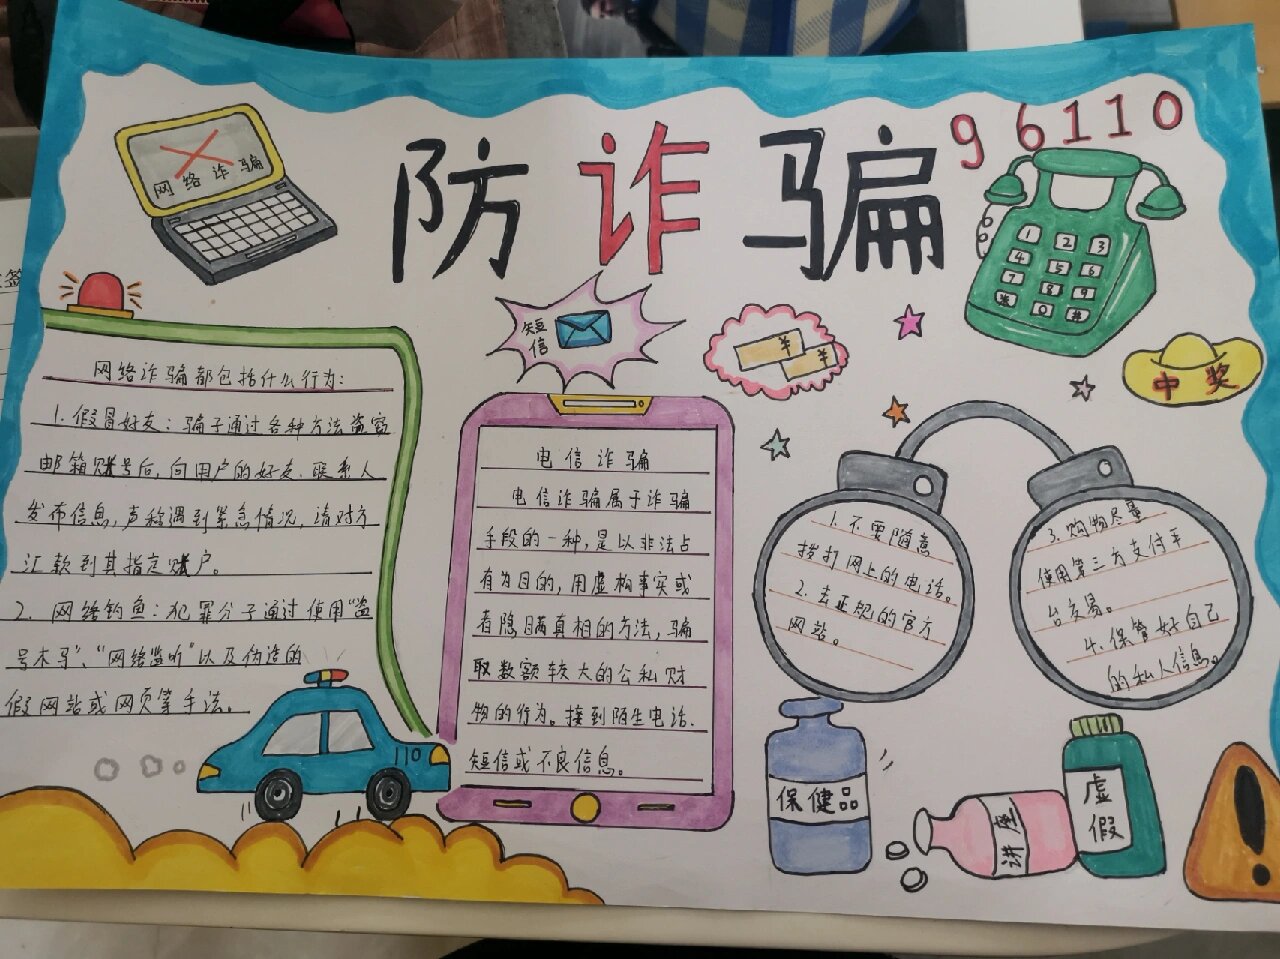 防诈骗
96110
网络诈骗
网络诈骗都包括什么行为:
1.假冒好友:骗子通过各种方法盗窃
邮箱账号后,向用户的好友、联系人
发布信息,声称遇到紧急情况,请对方
汇款到其指定账户。
2.网络钓鱼:犯罪分子通过使用“盗
号木马”、“网络监听”以及伪造的
假网站或网页等手法。
110
短
信
¥
¥
电信诈骗
电信诈骗属于诈骗
手段的一种,是以非法占
有为目的,用虚构事实或
者隐瞒真相的方法,骗
取数额较大的公私财
物的行为。接到陌生电话.
短信或不良信息。
1 2 3
4 5 6
7 8 9
※ 0 #
中奖
1.不要随意
拨打网上的电话。
2.去正规的官方
网站。
3.购物尽量
使用第三方支付平
台交易。
4.保管好自己
的私人信息。
保健品
讲座
虚
假
签